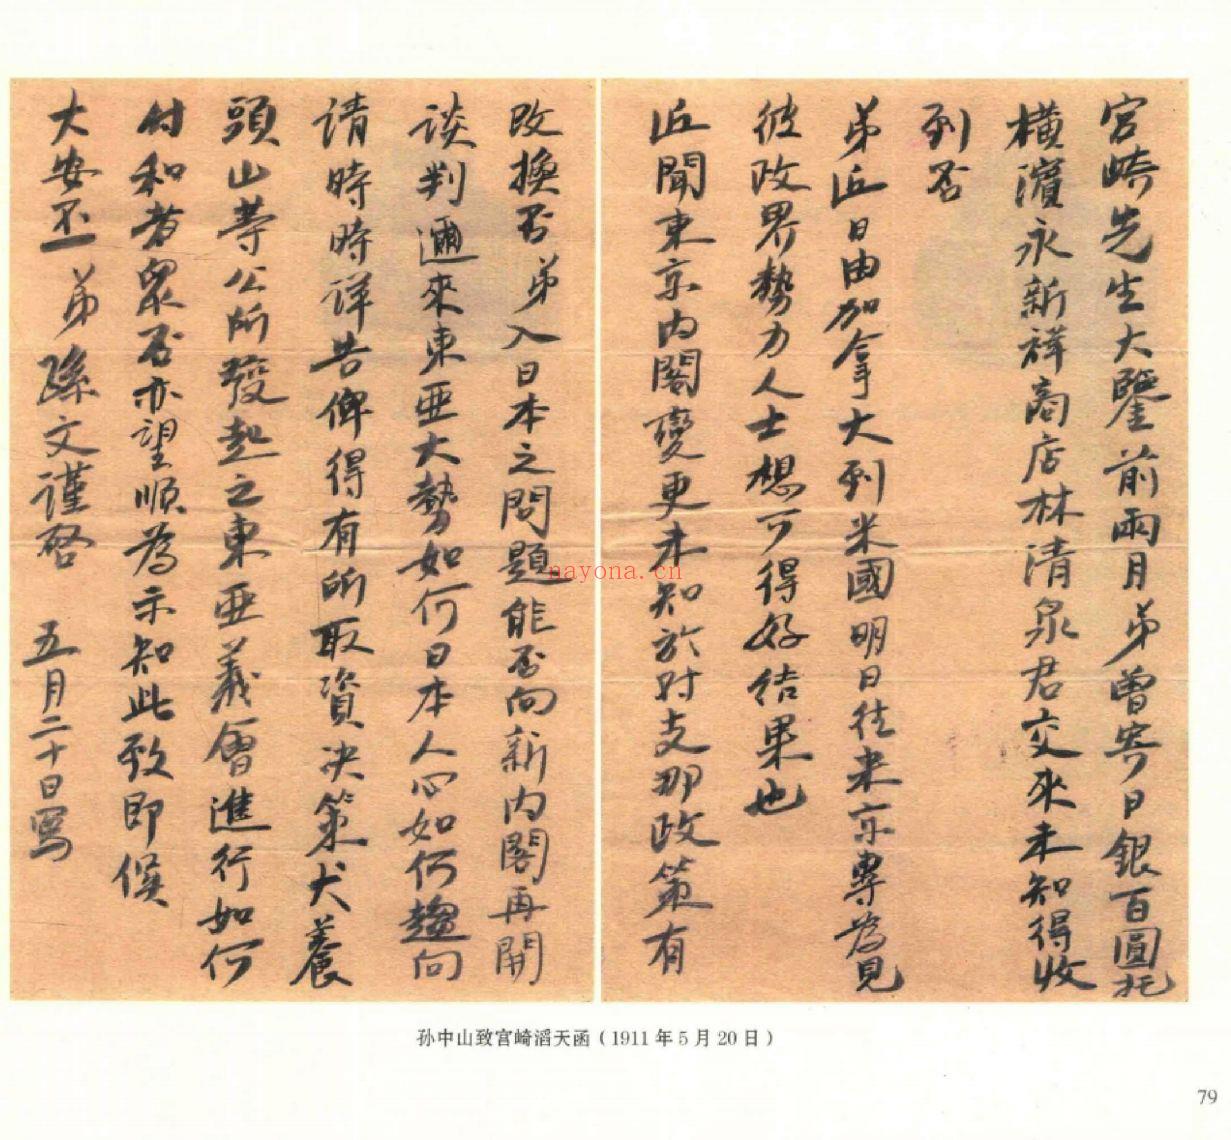 宮崎先生大鑒前兩月弟曾寄日銀百圓托
橫濱永新祥商店林清泉君交來未知得收
到否
弟近日由加拿大到米國明日往米京專為見
彼政界勢力人士想可得好結果也
近聞東京內閣變更未知於對支那政策有
改換否弟入日本之問題能否向新內閣再開
談判邇來東亞大勢如何日本人心如何趨向
请時時詳告俾得有所取資决策犬養
頭山等公所發起之東亞義會進行如何
付和者眾否亦望順為示知此致即候
大安不一 弟孫文謹啓 五月二十日寫
nayona.cn
孙中山致宫崎滔天函（1911 年 5 月 20 日）
79